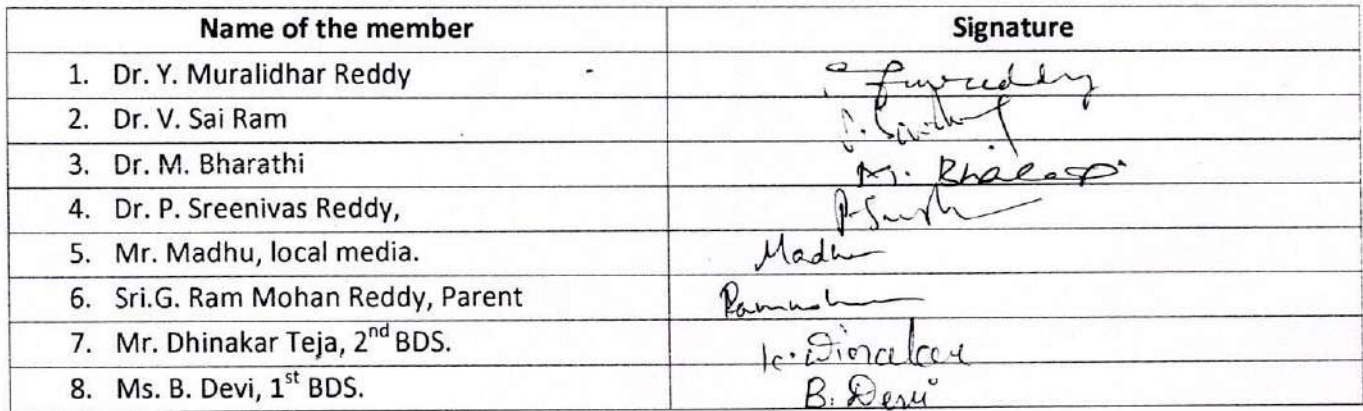 Name of the member Signature
1. Dr. Y. Muralidhar Reddy
2. Dr. V. Sai Ram
3. Dr. M. Bharathi M. Bharati
4. Dr. P. Sreenivas Reddy,
5. Mr. Madhu, local media. Madhu
6. Sri.G. Ram Mohan Reddy, Parent
7. Mr. Dhinakar Teja, 2nd BDS. K. Dinakar
8. Ms. B. Devi, 1st BDS. B. Devi